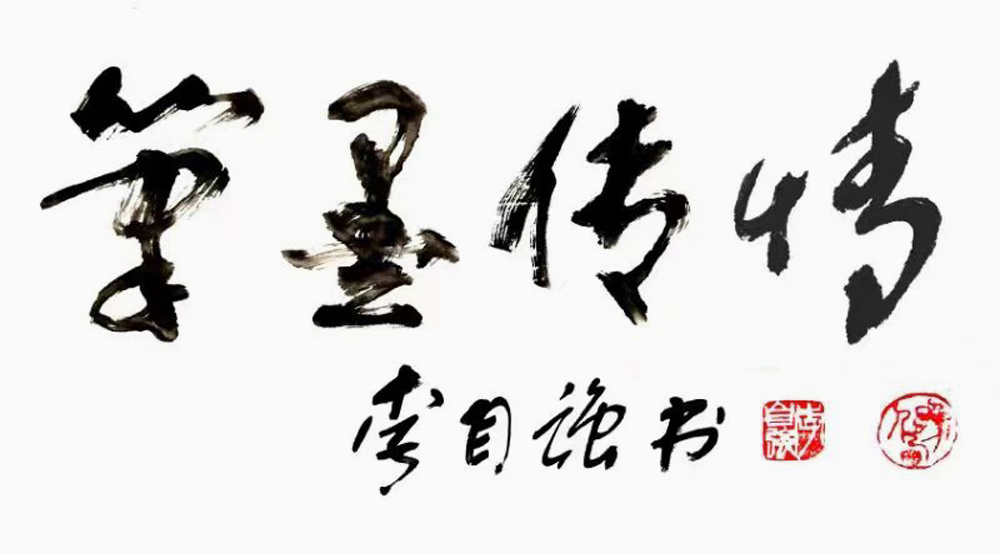 笔墨传情
李自强书